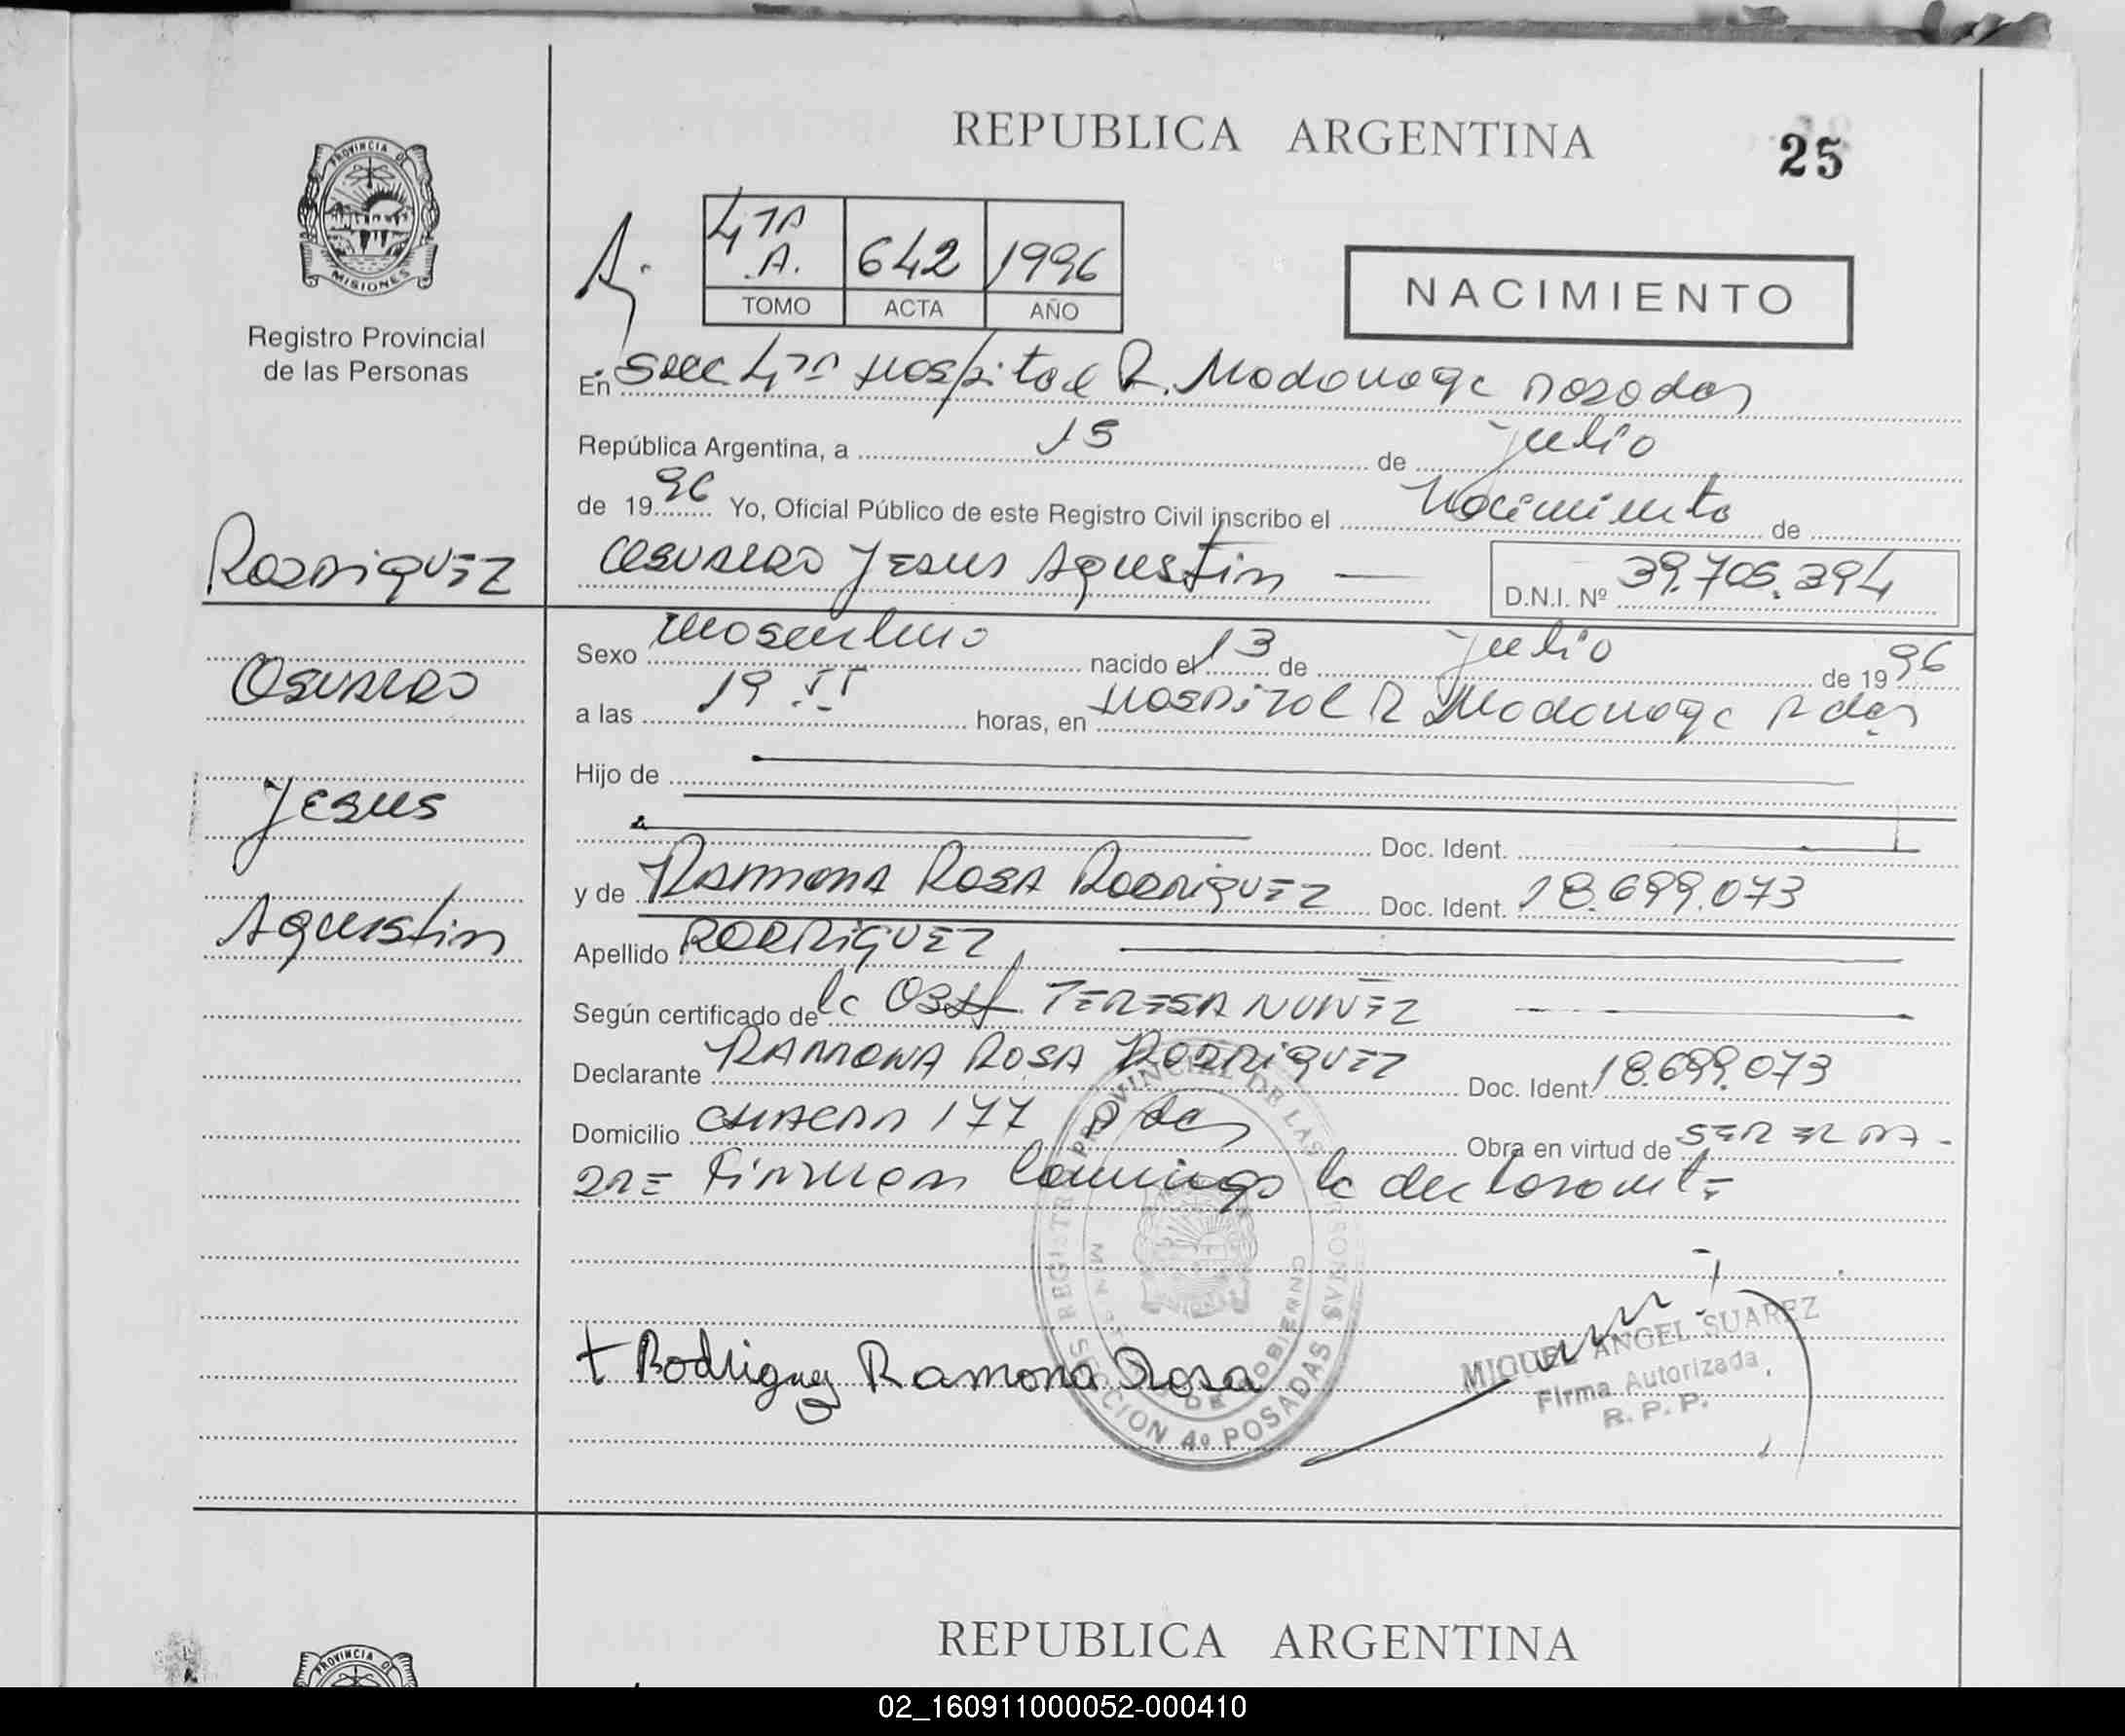 REPUBLICA ARGENTINA
25
PROVINCIA DE
MISIONES
Registro Provincial
de las Personas
4TA A. 642 1996
TOMO ACTA AÑO
NACIMIENTO
En Secc 4TA Hospital R. Madariaga Posadas
República Argentina, a 15 de julio
de 1996 Yo, Oficial Público de este Registro Civil inscribo el Nacimiento de
Jesus Agustin D.N.I. Nº 39.705.394
RODRIGUEZ
Jesus
Agustin
Sexo masculino nacido el 13 de julio de 1996
a las 19 horas, en Hospital R Madariaga Pdas
Hijo de
Doc. Ident.
y de RAMONA ROSA RODRIGUEZ Doc. Ident. 18.699.073
Apellido RODRIGUEZ
Según certificado de la OBST. TERESA NUÑEZ
Declarante RAMONA ROSA RODRIGUEZ Doc. Ident. 18.699.073
Domicilio CHACRA 177 Pdas Obra en virtud de SER EL MA-
DRE Firman conmigo la declarante
REGISTRO PROVINCIAL DE LAS PERSONAS
DE GOBIERNO
SECCION 4º POSADAS
+ Rodriguez Ramona Rosa
MIGUEL ANGEL SUAREZ
Firma Autorizada
R. P. P.
REPUBLICA ARGENTINA
PROVINCIA DE
02_160911000052-000410